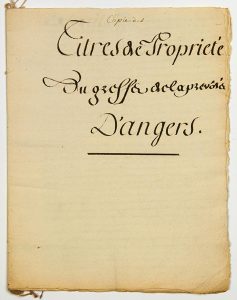 Copie des
Titres de Propriété
Du greffe de la prevosté
D'angers.